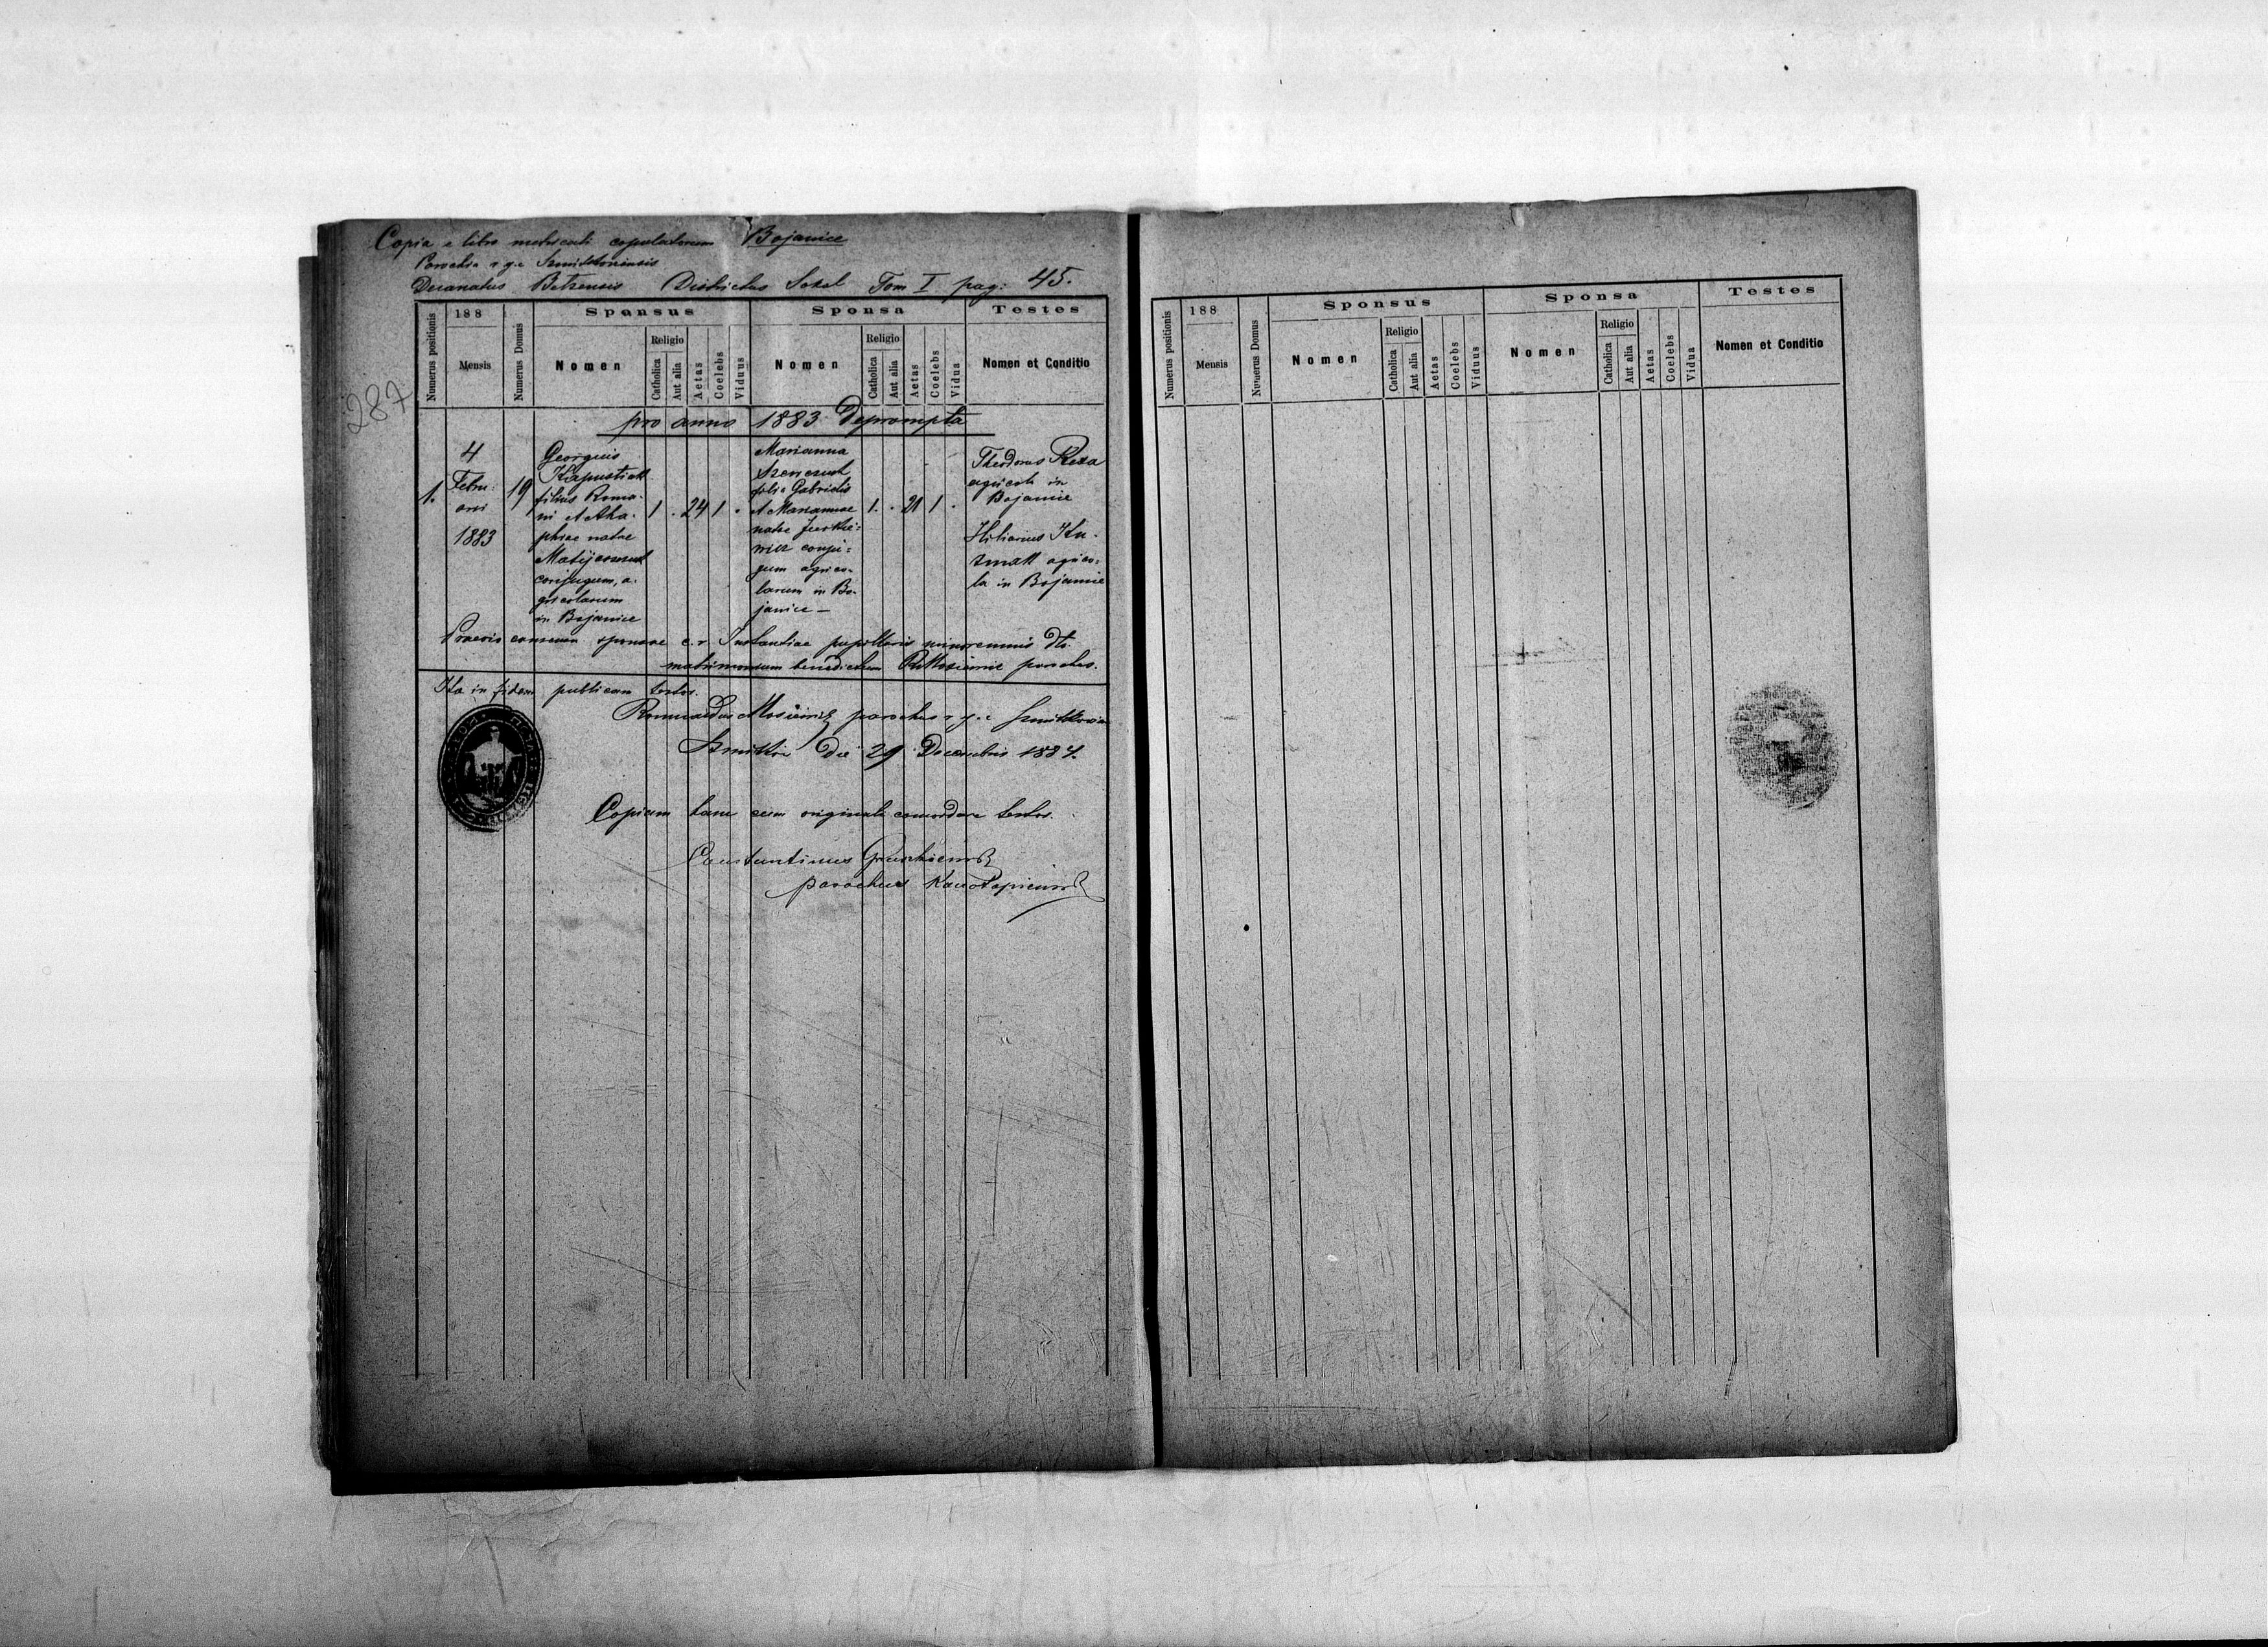 Copia e libro metricali copulatorum Bojanice
Parochia r. g. c. Szmitkoviensis
Decanatus Belzensis Districtus Sokal Tom I pag: 45.
287
Numerus positionis
188
Mensis
Numerus Domus
Sponsus
Nomen
Religio
Catholica
Aut alia
Aetas
Coelebs
Viduus
Sponsa
Nomen
Religio
Catholica
Aut alia
Aetas
Coelebs
Vidua
Testes
Nomen et Conditio
pro anno 1883 Deprompta
1.
4
Febru:
arii
1883
19
Georgius
Kapustiak
filius Roma-
ni et Aha-
phiae natae
Matijczuk
conjugum, a-
gricolarum
in Bojanice
1 . 24 1 .
Marianna
filia Gabrielis
et Mariannae
natae Jurkie-
wicz conju-
gum agrico-
larum in Bo-
janice —
1. . 21 1 .
Theodorus Reza
agricola in
Bojanice
Hilarius Ku-
zmak agrico-
la in Bojanice
Praevio consensu sponsae c. r. Instantiae pupillaris minorennis dti.
matrimonium benedictum parochus.
Ita in fidem publicam testor.
Romualdus Mosiewicz parochus r. g. c. Szmitkoviae
Szmitkow die 29 Decembris 1884.
Copiam hanc cum originali concordare testor.
Constantinus
parochus
Numerus positionis
188
Mensis
Numerus Domus
Sponsus
Nomen
Religio
Catholica
Aut alia
Aetas
Coelebs
Viduus
Sponsa
Nomen
Religio
Catholica
Aut alia
Aetas
Coelebs
Vidua
Testes
Nomen et Conditio